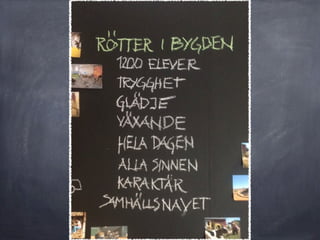 RÖTTER I BYGDEN
1200 ELEVER
TRYGGHET
GLÄDJE
VÄXANDE
HELA DAGEN
ALLA SINNEN
KARAKTÄR
SAMHÄLLSNAVET